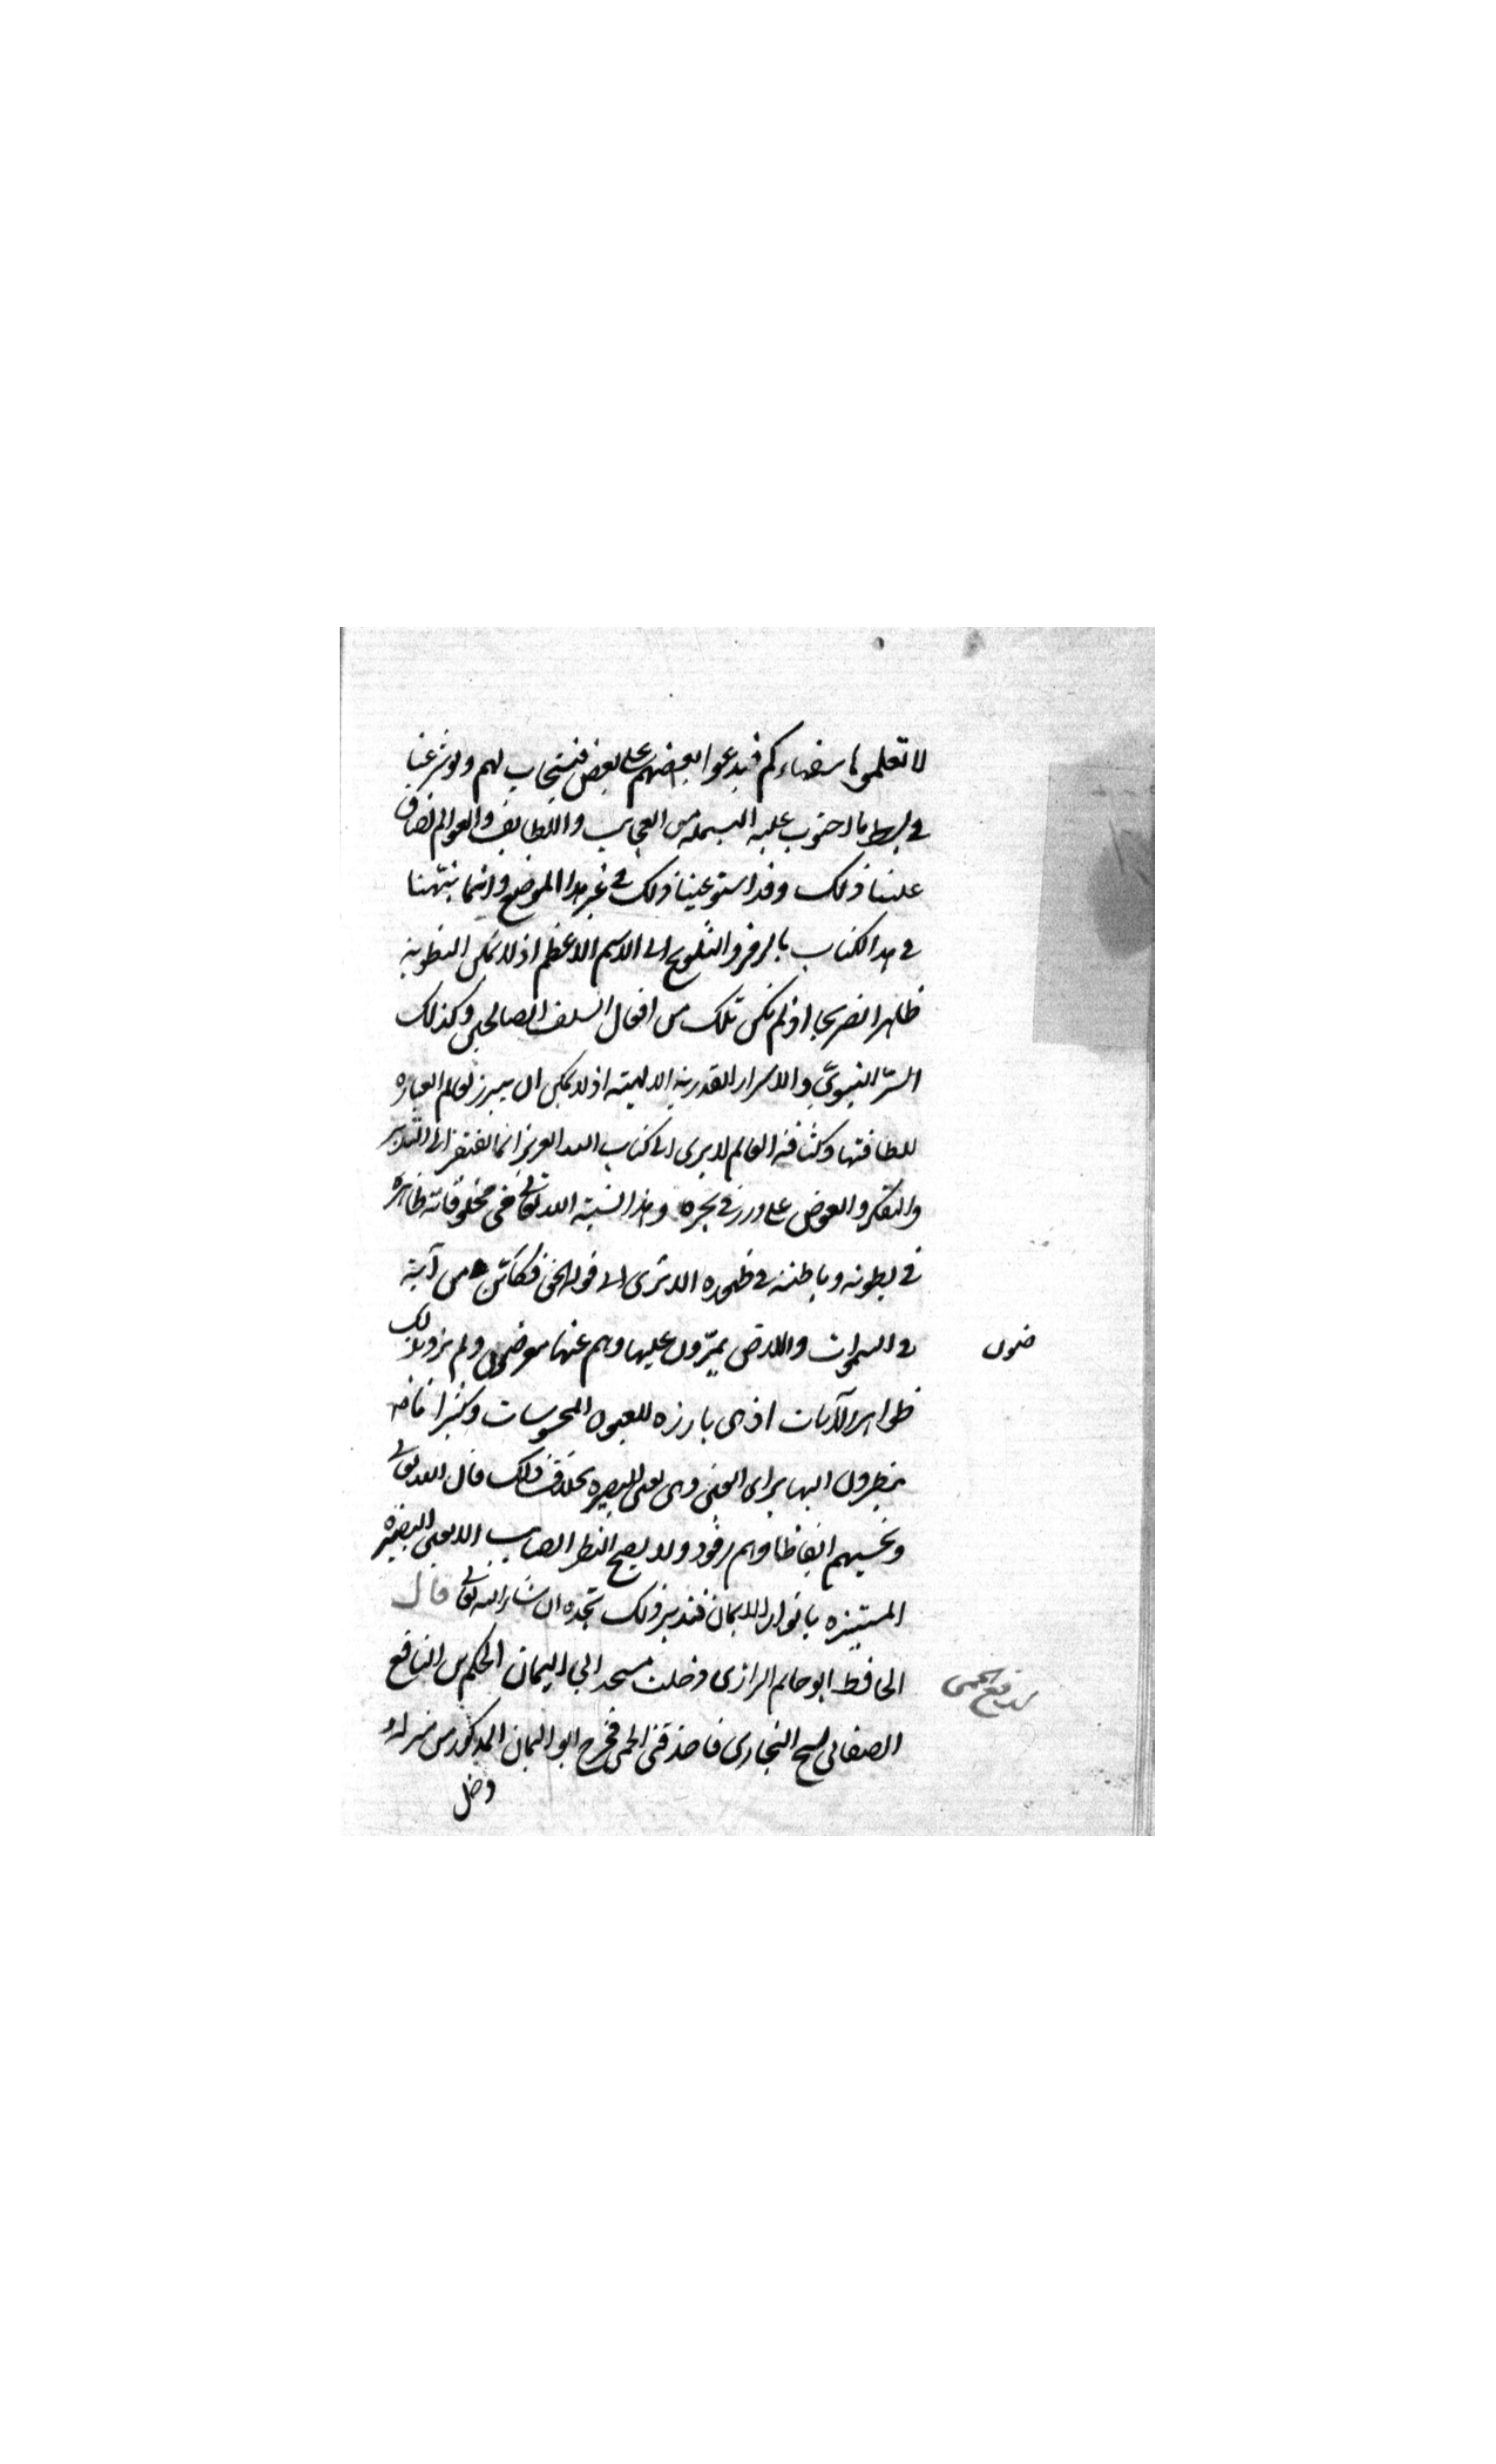 لا تعلموها سفهاءكم فيدعوا بعضهم على بعض فيستجاب لهم ولو شرعنا
في بسط ما احتوت عليه البسملة من العجايب واللطايف والعوالم لضاق
علينا ذلك وقد استوعبنا ذلك في غير هذا الموضع وانما نبّهنا
في هذا الكتاب بالرمز والتلويح الى الاسم الاعظم اذ لا يمكن النطق به
ظاهرا تصريحا اذ لم يكن ذلك من افعال السلف الصالحين وكذلك
السرّ النبويّ والاسرار القدرية الالهيته اذ لا يمكن ان يبرز لعالم العبارة
للطافتها وكثافة العالم الا يرى الى كتاب الله العزيز انما يفتقر الى التدبر
والتفكر والغوص على درر في بحره وهذا نسبته الله تعالى في مخلوقاته ظاهرة
في بطونه وباطنة في ظهوره الا ترى الى قوله الحق فكأيّن من آية
في السموات والارض يمرّون عليها وهم عنها معرضون ولم يرد بذلك
ضون
ظواهر الآيات اذ هي بارزة للعيون المحسوسات وكثيرا ما
ينظرون اليها برأى العين وهي لعين البصيرة بخلاف ذلك قال الله تعالى
وتحسبهم ايقاظا وهم رقود ولا يصح النظر الصايب الا بعين البصيرة
المستنيرة بانوار الايمان فتدبر ذلك تجده ان شاء الله تعالى قال
الحافظ ابو حاتم الرازى دخلت مسجد ابي اليمان الحكم بن النافع
لدفع الحمى
شيخ البخارى فاخذتنى الحمى فخرج ابو اليمان المذكور من
دخل